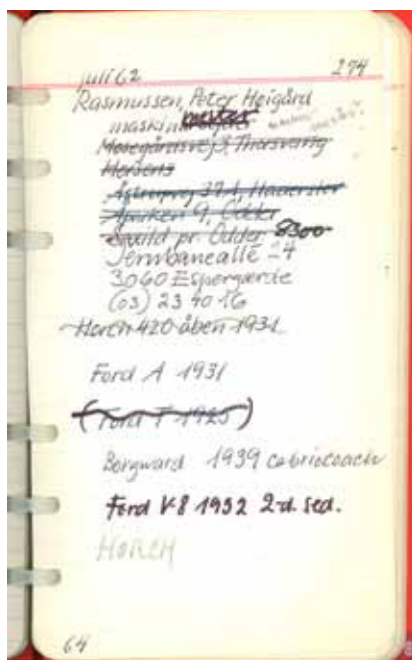 juli 62 274
Rasmussen, Peter Høigård
maskinmester
Mosegårdsvej 3, Thorsvang
Horsens
Aparken 9, Odder
Saxild pr. Odder 8300
Jernbaneallé 24
3060 Espergærde
(03) 23 40 16
Horch 420 åben 1931
Ford A 1931
(Ford T 1925)
Borgward 1939 cabriocoach
Ford V-8 1932 2-d. sed.
HORCH
64